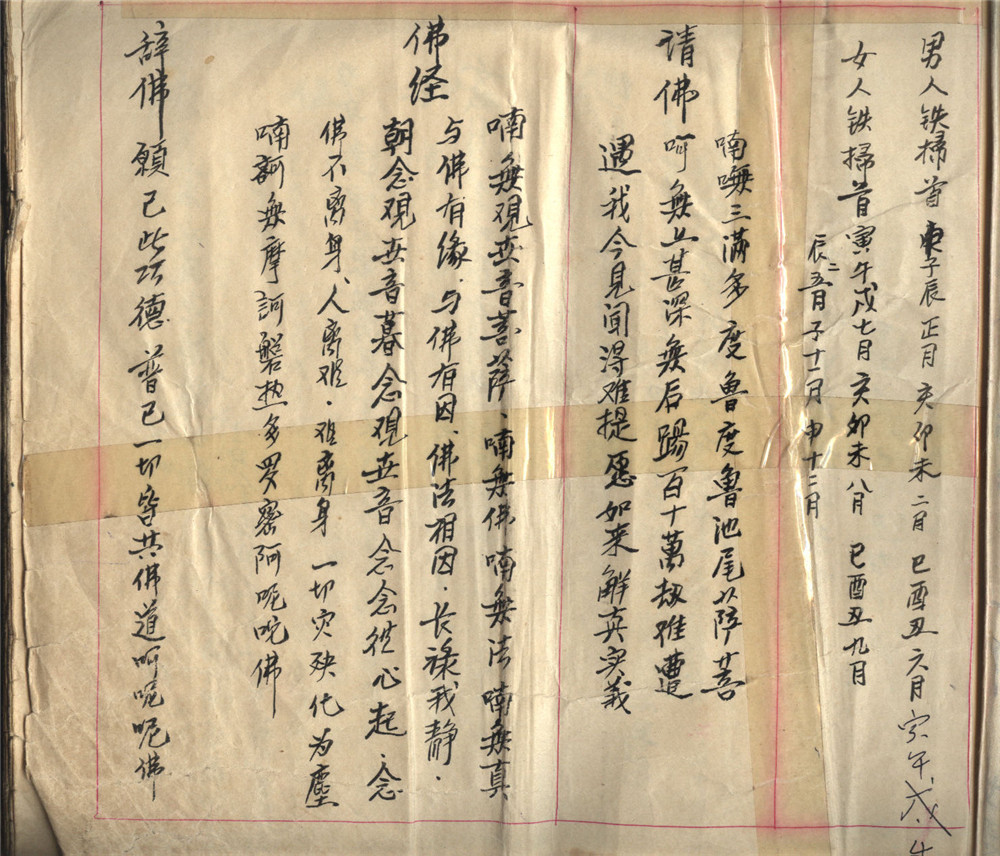 男人铁掃首 子辰正月 亥卯未二月 巳酉丑六月
女人铁掃首寅午戌七月 亥卯未八月 巳酉丑九月
辰二五月子十一月申十二月
请佛
喃嘸三满多度魯度魯池尾以薩菩
呵無上甚深無后踢百十萬劫难遭
遇我今見闻得难提愿如来解真实義
佛经
喃無观世音菩萨、喃無佛喃無法喃無真
与佛有缘、与佛有因、佛法相因、长禄我静.
朝念观世音暮念观世音念念從心起、念
佛不离身、人离难.难离身一切灾殃化为塵
喃訶無摩訶磐热多罗密阿呢呢佛
辞佛
願已此功德普已一切皆共佛道呵呢呢佛